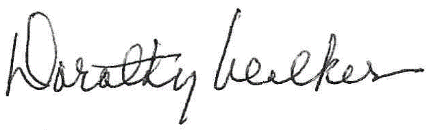 Dorothy Walker